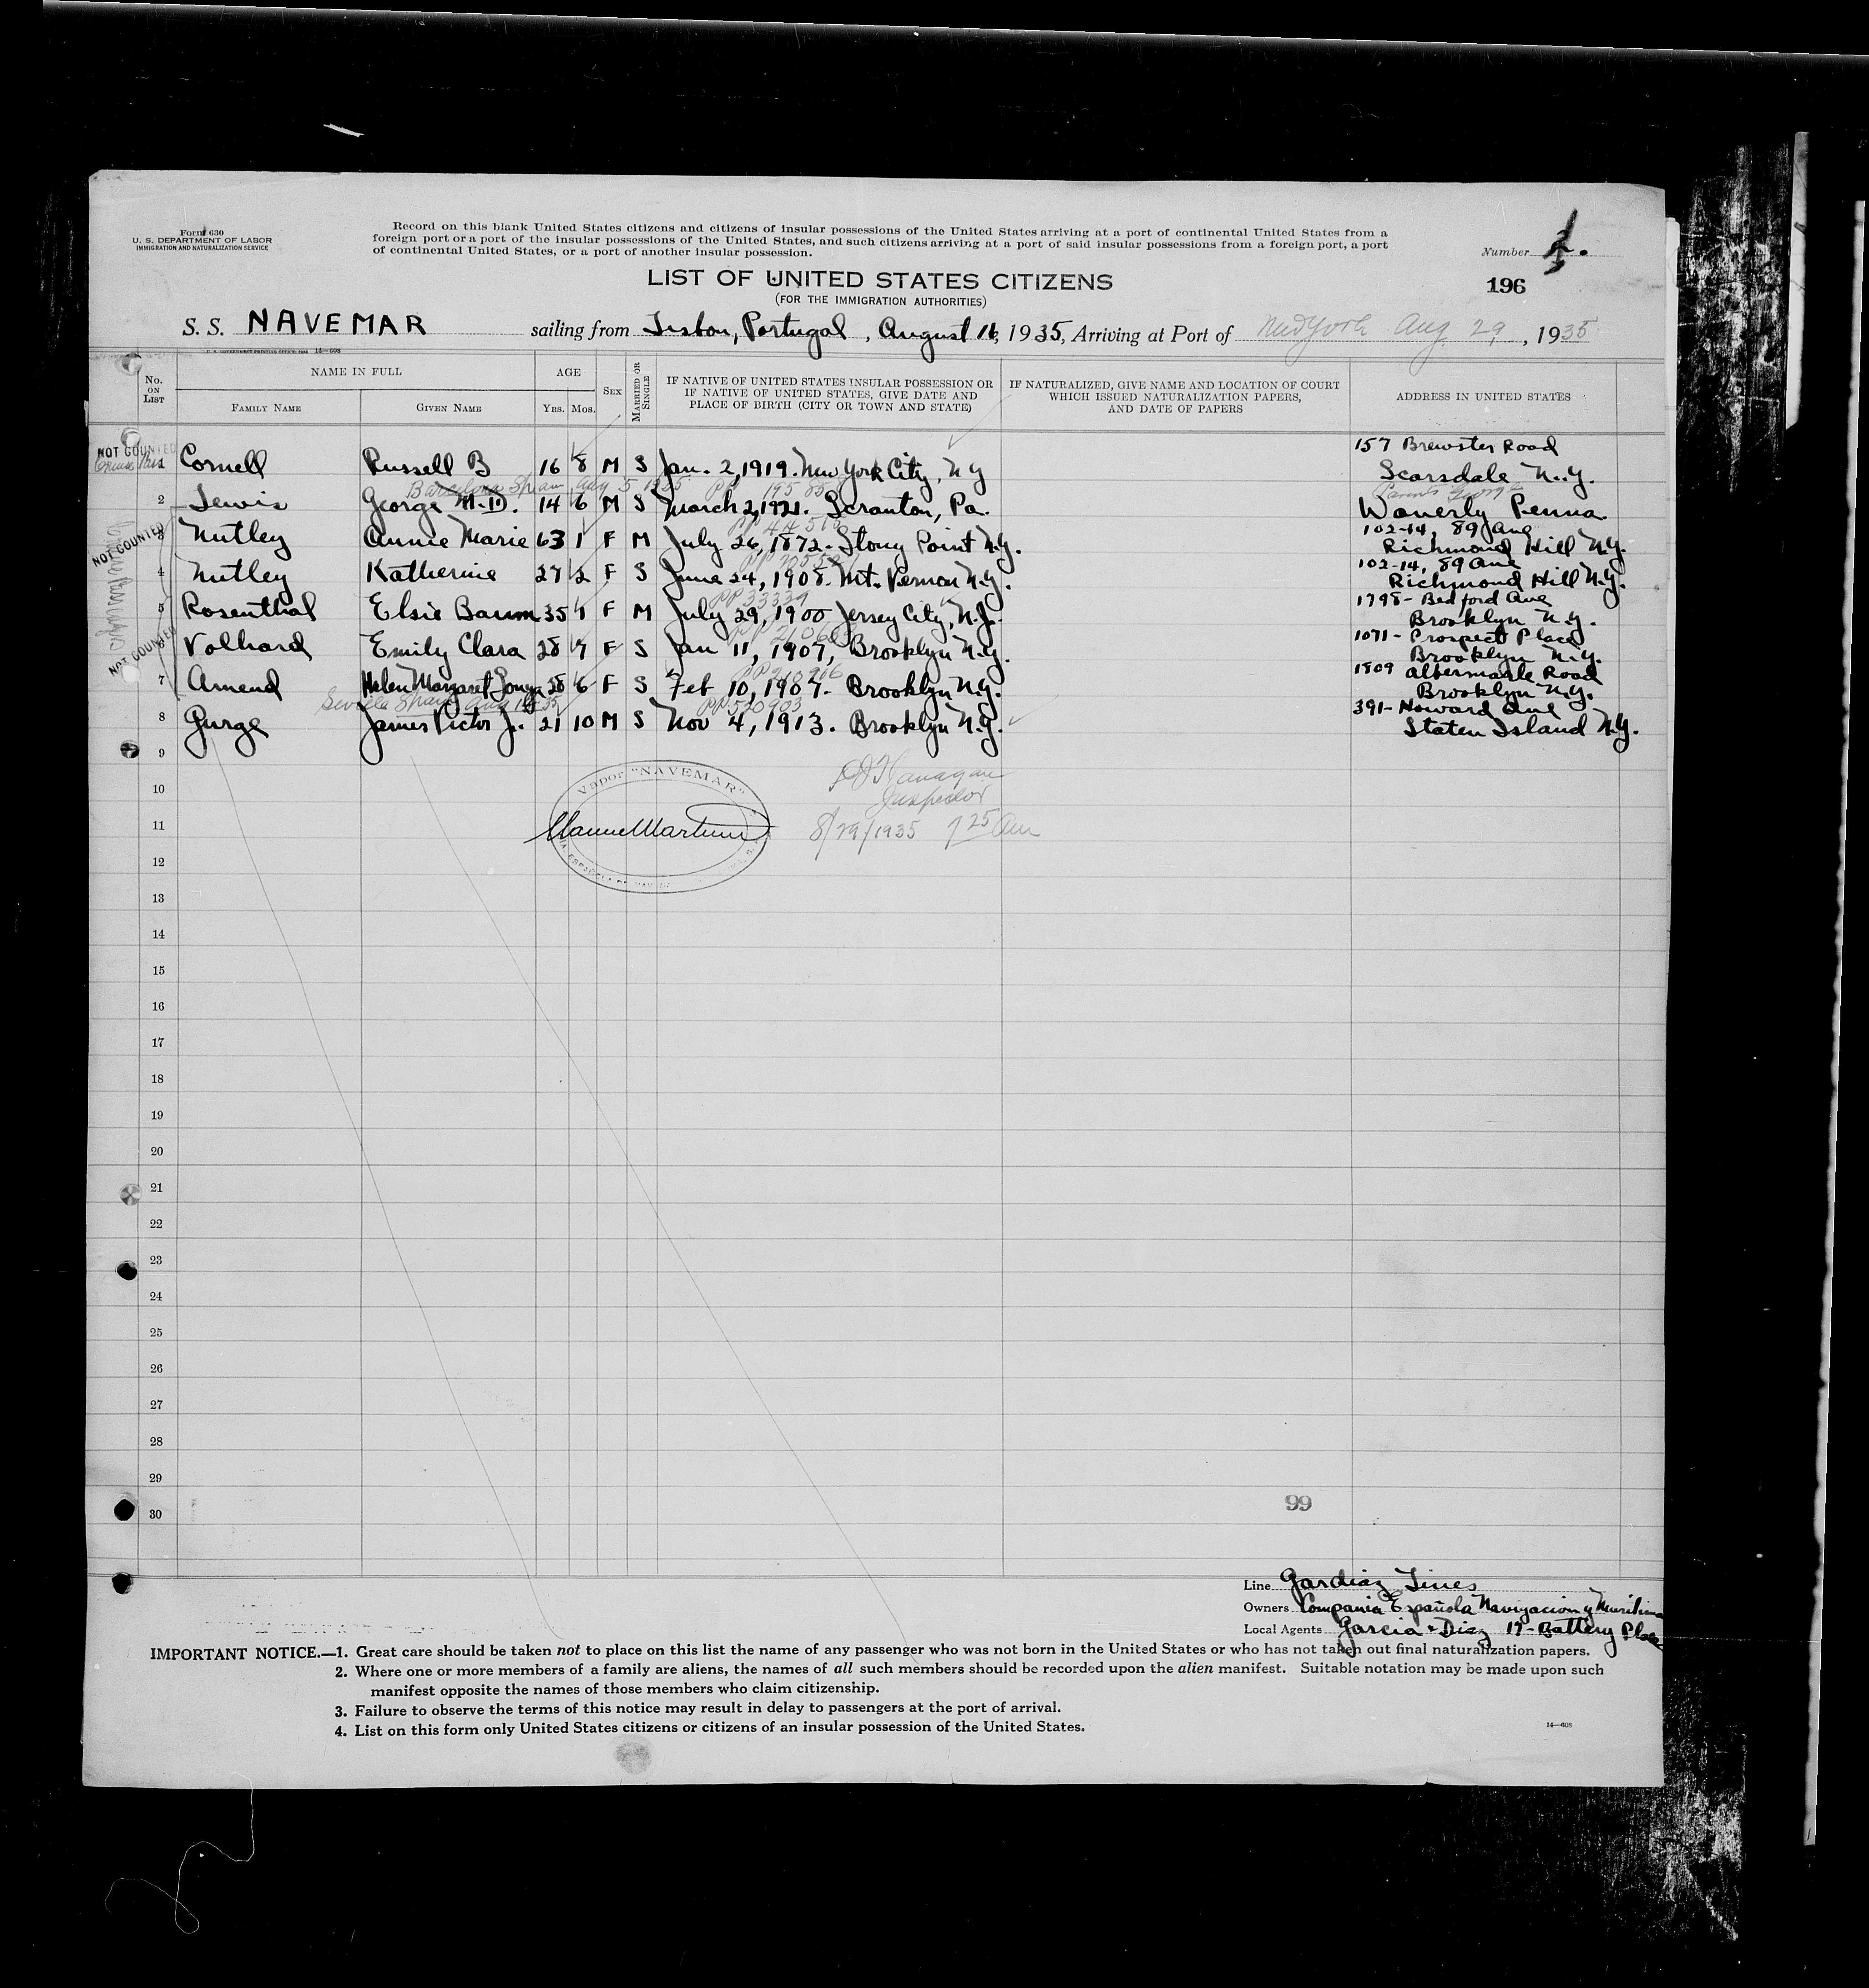 Form 630
U. S. DEPARTMENT OF LABOR
IMMIGRATION AND NATURALIZATION SERVICE
Record on this blank United States citizens and citizens of insular possessions of the United States arriving at a port of continental United States from a
foreign port or a port of the insular possessions of the United States, and such citizens arriving at a port of said insular possessions from a foreign port, a port
of continental United States, or a port of another insular possession.
Number
196
LIST OF UNITED STATES CITIZENS
(FOR THE IMMIGRATION AUTHORITIES)
S. S. NAVEMAR sailing from Lisbon, Portugal, August 16, 1935, Arriving at Port of New York Aug. 29, 1935
No. ON LIST
NAME IN FULL
FAMILY NAME GIVEN NAME
AGE
YRS. MOS.
SEX
MARRIED OR SINGLE
IF NATIVE OF UNITED STATES INSULAR POSSESSION OR
IF NATIVE OF UNITED STATES, GIVE DATE AND
PLACE OF BIRTH (CITY OR TOWN AND STATE)
IF NATURALIZED, GIVE NAME AND LOCATION OF COURT
WHICH ISSUED NATURALIZATION PAPERS,
AND DATE OF PAPERS
ADDRESS IN UNITED STATES
NOT COUNTED
157 Brewster Road
Cornell Russell B 16 8 M S Jan. 2, 1919. New York City, NY Scarsdale N.Y.
Barcelona Spain Aug 5 1935 PP
2 Lewis George M.D. 14 6 M S March 2, 1921. Scranton, Pa. Waverly Penna.
NOT COUNTED
102-14, 89 Ave
3 Nutley Annie Marie 63 1 F M July 26, 1872. Stony Point N.Y. Richmond Hill N.Y.
102-14, 89 Ave
4 Nutley Katherine 27 2 F S June 24, 1908. Mt. Vernon N.Y. Richmond Hill N.Y.
PP 33339
1798- Bedford Ave
5 Rosenthal Elsie Baum 35 1 F M July 29, 1900 Jersey City, N.J. Brooklyn N.Y.
NOT COUNTED
1071- Prospect Place
6 Volhard Emily Clara 28 7 F S Jan 11, 1907, Brooklyn N.Y. Brooklyn N.Y.
PP 210216
1809 Albermarle Road
7 Amend Helen Margaret 28 6 F S Feb 10, 1907. Brooklyn N.Y. Brooklyn N.Y.
Sevilla Spain Aug 35 PP 520903
391- Howard Ave
8 Gurge James Victor Jr. 21 10 M S Nov 4, 1913. Brooklyn N.Y. Staten Island N.Y.
9
10
11
12
13
14
15
16
17
18
19
20
21
22
23
24
25
26
27
28
29
30
Vapor "NAVEMAR"
Inspector
8/29/1935 7 25 Am
99
Line Gardiaz Lines
Owners Compania Española Navigacion y Maritima
Local Agents Garcia & Diaz 17- Battery Place
IMPORTANT NOTICE.—1. Great care should be taken not to place on this list the name of any passenger who was not born in the United States or who has not taken out final naturalization papers.
2. Where one or more members of a family are aliens, the names of all such members should be recorded upon the alien manifest. Suitable notation may be made upon such
manifest opposite the names of those members who claim citizenship.
3. Failure to observe the terms of this notice may result in delay to passengers at the port of arrival.
4. List on this form only United States citizens or citizens of an insular possession of the United States.
14—608